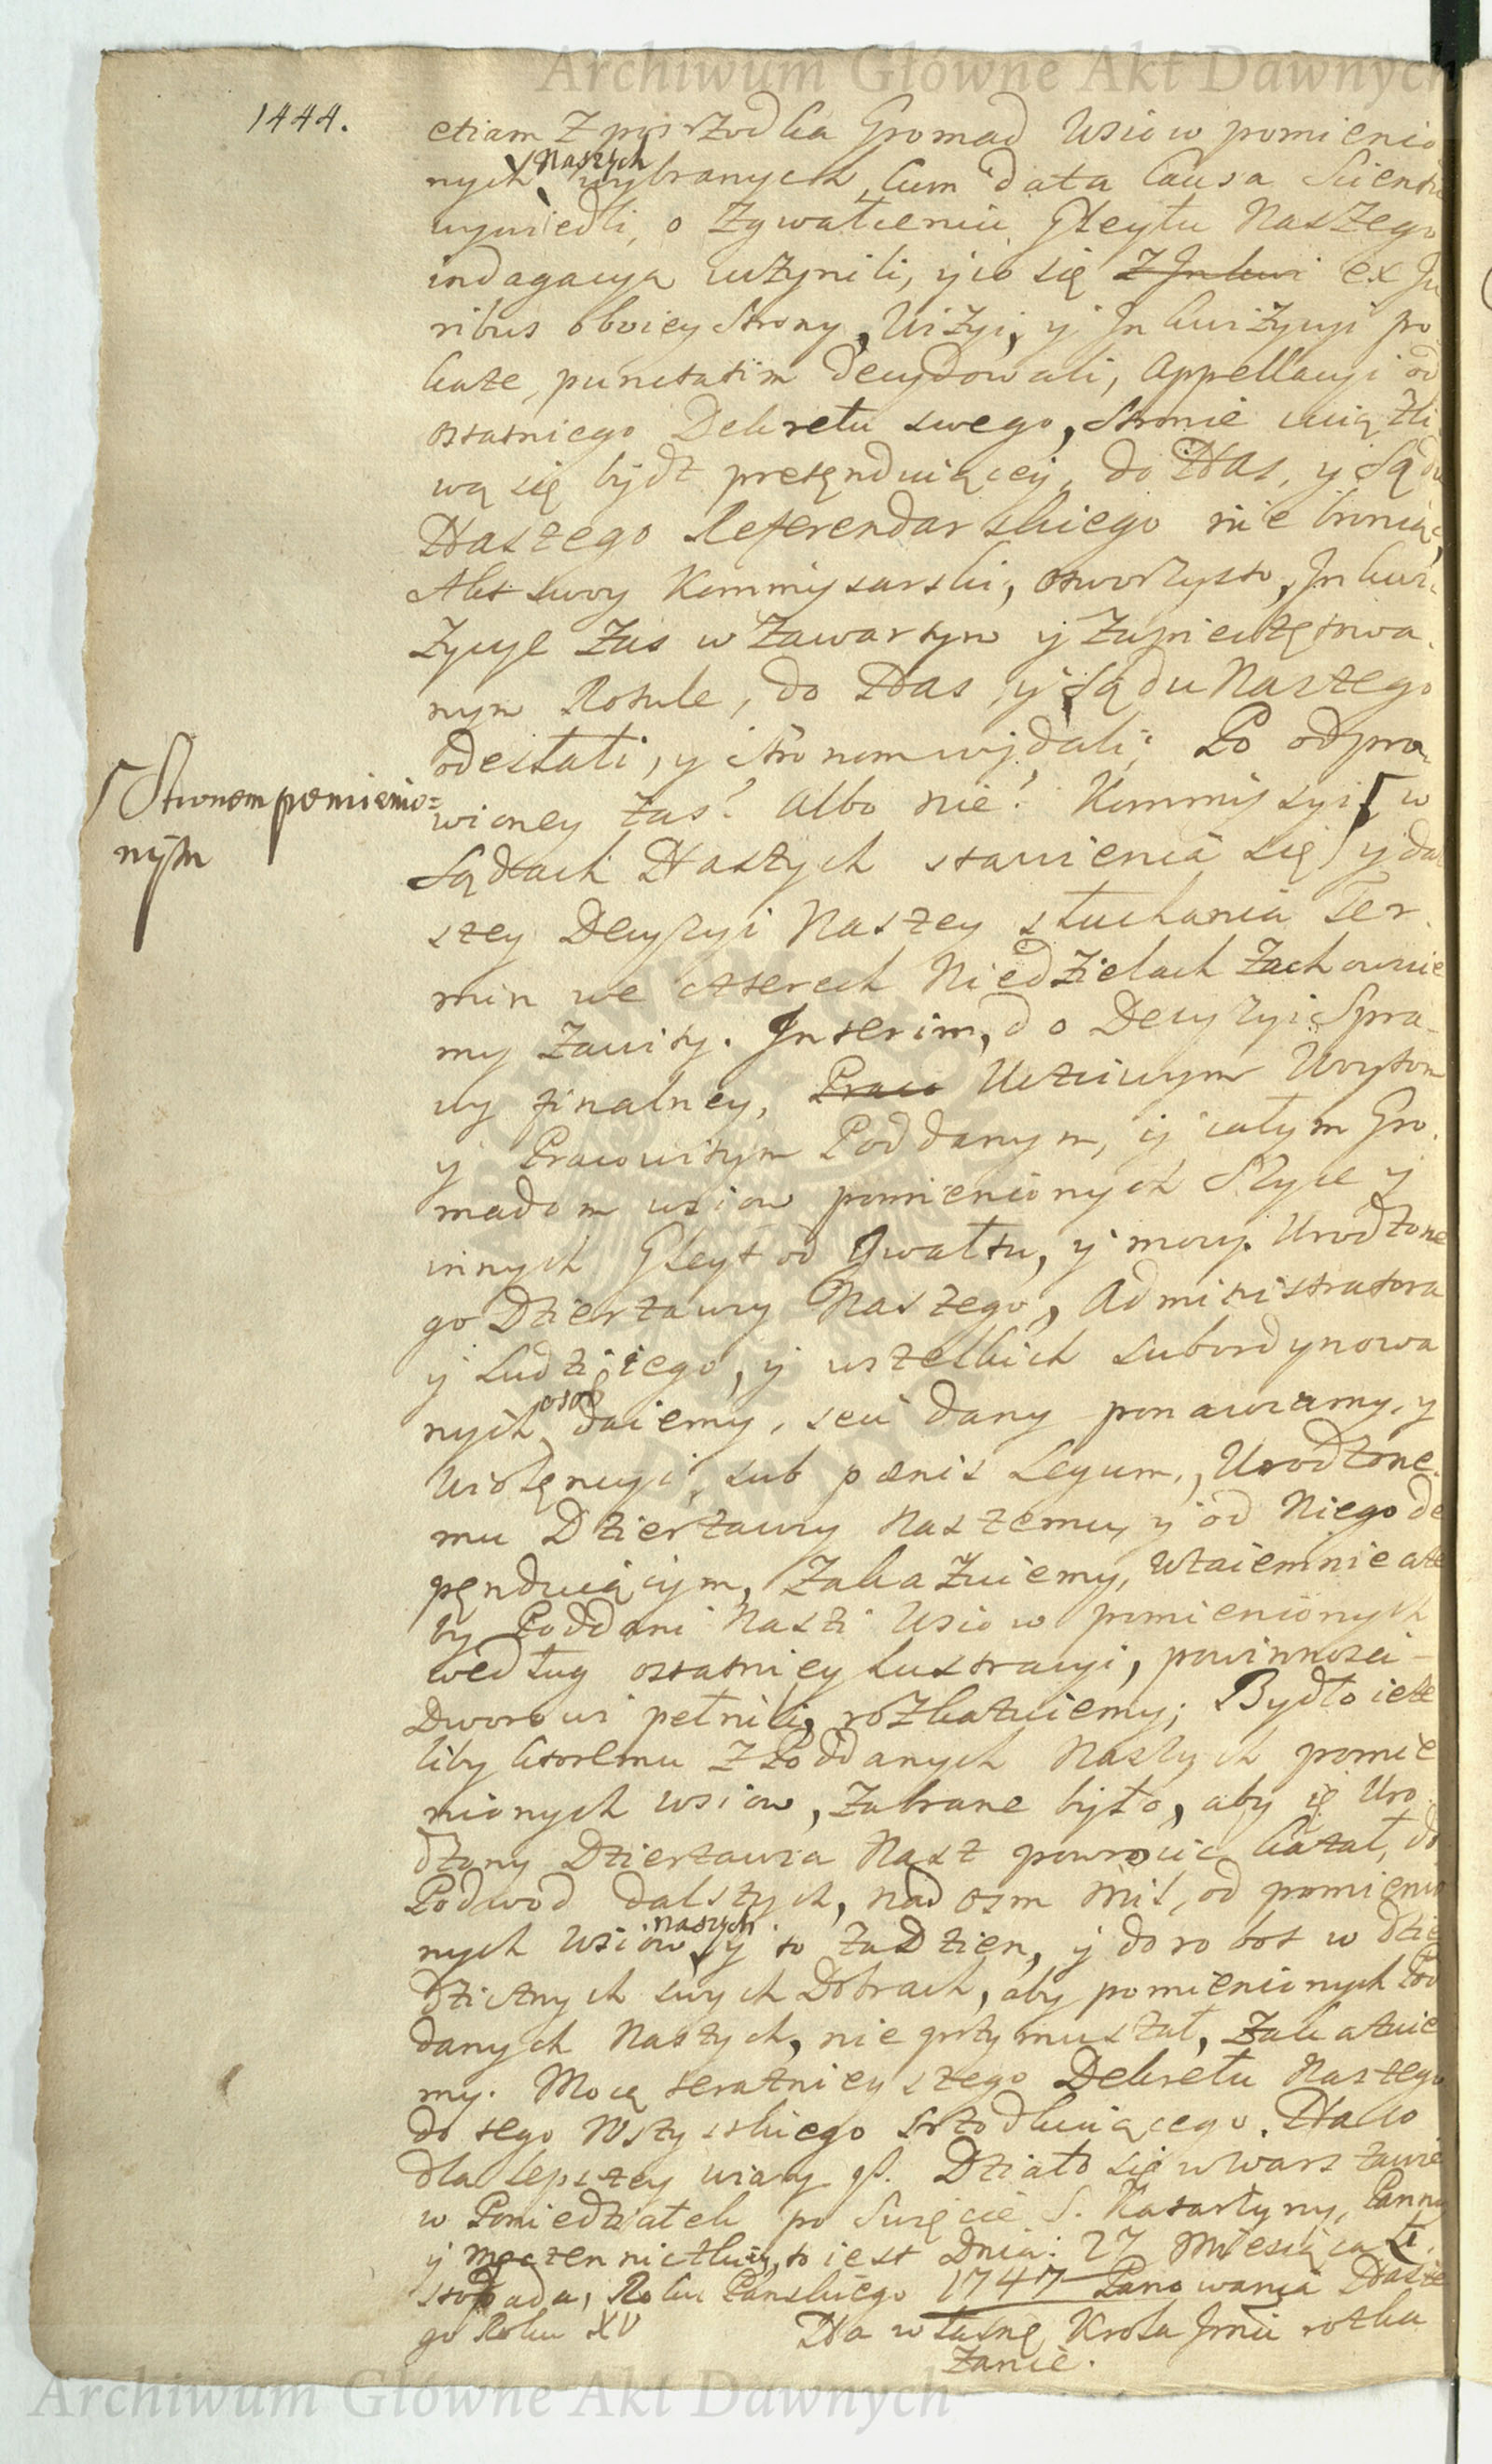 Archiwum Główne Akt Dawnych
1444.
etiam z pośrzodka Gromad Wsiow pomienio
nych Naszych wybranych, cum data Causa Scientiæ
wywiedli, o zgwałceniu Gleytu Naszego
indagacyą uczynili, y co się z Inkwi ex Ju
ribus oboiey Strony, Wizyi, y Inkwizycyi po
każe, punctatim decydowali, Appellacyi od
ostatniego Dekretu swego, Stronie uciążli
wą się bydź pretęnduiącey, do Nas, y Sądu
Naszego Referendarskiego nie broniąc,
Akt swoy Kommisarski, otworzysto, Inkwi
zycye zas w zawartym y zapieczętowa
nym Rotule, do Nas, y Sądu Naszego
odesłali, y stronom wydali; Po odpra
wioney zas? albo nie? Kommissyi w
Stronom pomienio=
nym
Sądach Naszych stawienia się y dal
szey Decyzyi Naszey słuchania Ter
min we czterech Niedzielach zachowuie
my zawity. Interim, do Decyzyi Spra
wy finalney, Praco Uczciwym Woytom
y Pracowitym Poddanym, y całym Gro
madom wsiow pomienionych Ryce y
innych Gleyt od Gwałtu, y mocy Urodzone
go Dzierżawcy Naszego, Administratora
y Ludzi iego, y wszelkich subordynowa
nych osob daiemy, seu dany ponawiamy, y
Wiolęncyi, sub pœnis Legum, Urodzone
mu Dzierżawcy Naszemu, y od Niego de
pęnduiącym, zakazuiemy, Wzaiemnie aże
by Poddani Naszi Wsiow pomienionych
według ostatniey Lustracyi, powinnosci
Dworowi pełnili, rozkazuiemy; Bydło ieże
liby ktoremu z Poddanych Naszych pomie
nionych wsiow, zabrane było, aby ię Uro
dzony Dzierżawca Nasz powrocić kazał, do
Podwod dalszych, nad osm mil, od pomienio
nych Wsiow naszych y to za Dzien, y do robot w dzie
dzicznych swych Dobrach, aby pomienionych Pod
danych Naszych, nie przymuszał, zakazuie
my. Mocą teraznieyszego Dekretu Naszego
do tego wszystkiego srzodkuiącego. Na co
dla lepszey wiary etc. Działo się w Warszawie
w Poniedziałek po Swięcie S. Katarzyny, Panny
y Męczenniczki, to iest Dnia: 27 Miesiąca Li
stopada, Roku Panskiego 1747 Panowania Nasze
go Roku XV
Na własne Krola Jmci rozka
zanie.
Archiwum Główne Akt Dawnych